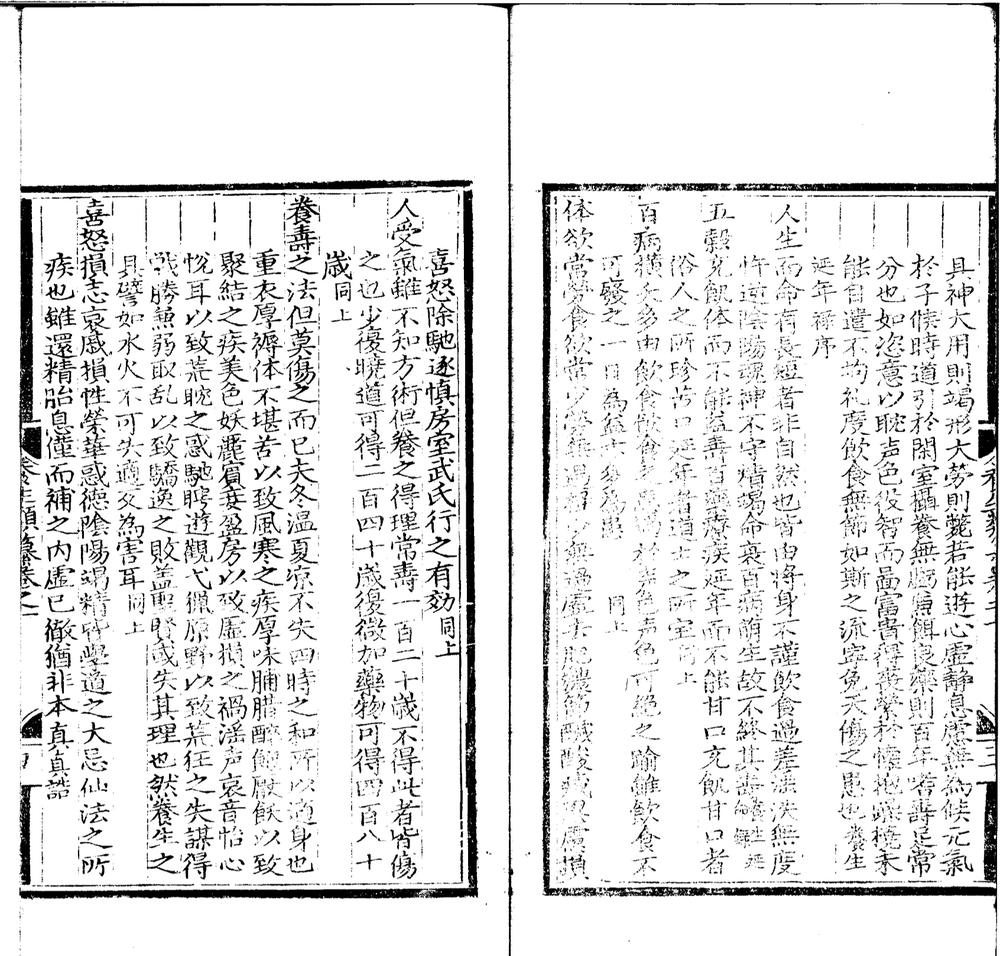 具神大用則竭形大勞則斃若能遊心虛静息慮無為候元氣
於子候時道引於閑室攝養無虧兼餌良藥則百年耆壽是常
分也如恣意以耽声色役智而啚富貴得喪縈於懷抱躁撓未
能自遣不拘礼度飲食無節如斯之流寧免夭傷之患也養生
延年禄序
人生而命有長短者非自然也皆由将身不謹飲食過差淫泆無度
忤逆陰陽魂神不守精竭命衰百病萌生故不終其壽養性延
五穀充飢体而不能益壽百藥療疾延年而不能甘口充飢甘口者
俗人之所珍苦口延年者道士之所宝同上
百病横夭多由飲食飲食之患過於声色声色可絶之踰雖飲食不
可廢之一日為益亦多為患 同上
体欲常勞食欲常少勞無過極少無過虛去肥濃節醎酸减思慮損
喜怒除馳逐慎房室武氏行之有効同上
人受氣雖不知方術但養之得理常壽一百二十歲不得此者皆傷
之也少復曉道可得二百四十歲復微加藥物可得四百八十
歲同上
養壽之法但莫傷之而已夫冬温夏凉不失四時之和所以適身也
重衣厚褥体不堪苦以致風寒之疾厚味脯腊醉飽厭飫以致
聚結之疾美色妖麗嬪妾盈房以致虛損之禍淫声哀音怡心
悅耳以致荒耽之惑馳騁遊觀弋獵原野以致荒狂之失謀得
戰勝兼弱取乱以致驕逸之敗盖聖賢或失其理也然養生之
具譬如水火不可失適反為害耳同上
喜怒損志哀戚損性榮華惑德陰陽竭精皆學道之大忌仙法之所
疾也雖還精胎息僅而補之内虛已徹猶非本真真誥
養生類纂卷之一
四